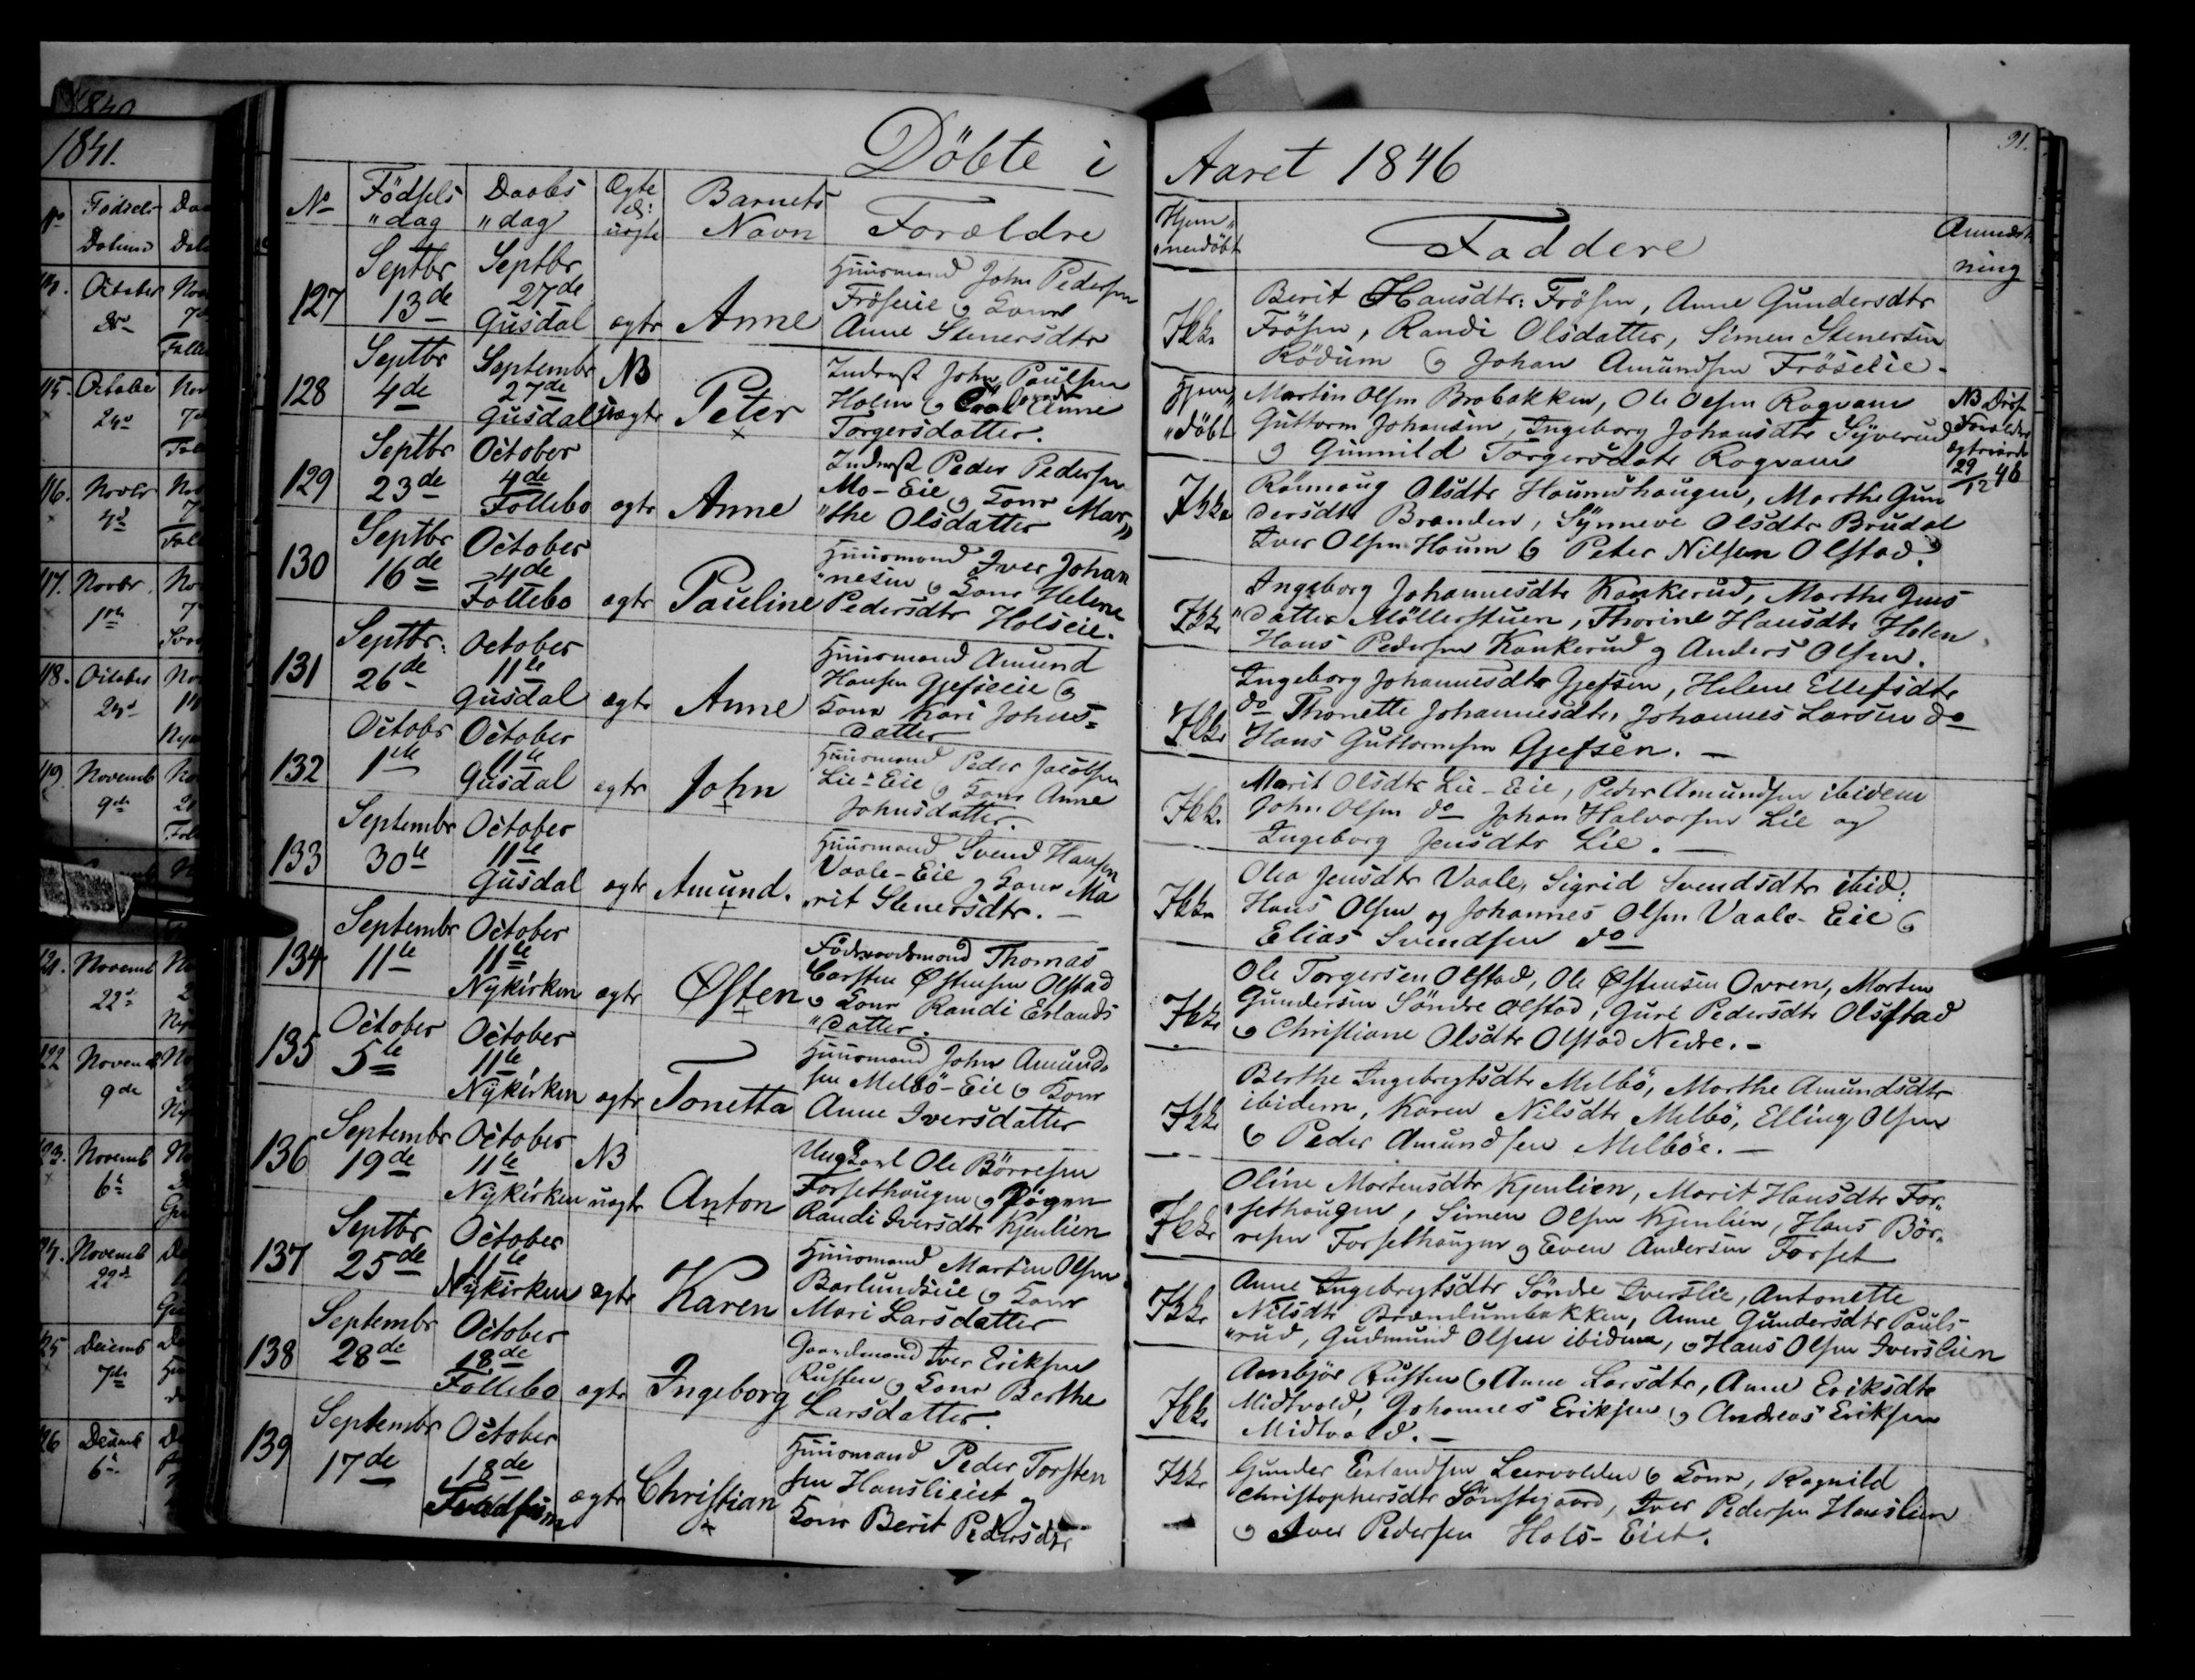 Döbte i Aaret 1846
91.
No Födsels „dag Daabs „dag Ægte el: uægte Barnets Navn Forældre Hjem„ „medöbt Faddere Anmærk ning
127 Septbr 13de Septbr 27de Gusdal ægte Anne
Huusmand John Pedersen
Fröseie og Kone
Anne Stenersdtr
Ikke
Berit Hansdtr: Frösen, Anne Gundersdtr
Frösen, Randi Olsdatter, Simen Stenersen
Rödum og Johan Amundsen Fröselie.
128 Septbr 4de Septembr 27de Gusdal NB uægte Peter
Inderst John Paulsen
Holen og Anne
Torgersdatter.
Hjem„ „döbt
Martin Olsen Brobakken, Ole Olsen Rogvam
Guttorm Johansen, Ingeborg Johansdtr Syverud
og Gunnild Torgersdatr Rogvam
NB Disse
Forældre
29/12 46
129 Septbr 23de October 4de Follebo ægte Anne
Inderst Peder Pedersen
Mo-Eie og Kone Mar„
„the Olsdatter
Ikke
Rönnaug Olsdtr Houmshaugen, Marthe Gun
dersdtr Branden, Synneve Olsdtr Brudal
Iver Olsen Houm og Peter Nilsen Olstad.
130 Septbr 16de October 4de Follebo ægte Pauline
Huusmand Iver Johan
„nesen og Kone Helene
Pedersdtr Holseie.
Ikke
Ingeborg Johannesdtr Kankerud, Marthe Jens
„datter Möllerstuen, Thorine Hansdtr Holen
Hans Pedersen Kankerud og Anders Olsen.
131 Septbr: 26de October 11te Gusdal ægte Anne
Huusmand Amund
Hansen Gjefseeie og
Kone Kari Johns=
datter
Ikke
Ingeborg Johannesdtr Gjefsen, Helene Ellefsdtr
do Thonette Johannesdtr, Johannes Larsen do
Hans Guttormsen Gjefsen. —
132 Octobr 1ste October 11te Gusdal ægte John
Huusmand Peder Jacobsen
Lie-Eie og Kone Anne
Johnsdatter.
Ikke.
Marit Olsdtr Lie-Eie, Peder Amundsen ibidem
John Olsen do Johan Halvorsen Lie og
Ingeborg Jensdtr Lie. —
133 Septembr 30te October 11te Gusdal ægte Amund.
Huusmand Svend Hansen
Vaale-Eie og Kone Ma
„rit Stenersdtr. —
Ikke
Olea Jensdtr Vaale, Sigrid Svendsdtr ibid:
Hans Olsen og Johannes Olsen Vaale-Eie og
Elias Svendsen do
134 Septembr 11te October 11te Nykirken ægte Østen
Föderaadsmand Thomas
Carsten Østensen Olstad
og Kone Randi Erlands
„datter.
Ikke
Ole Torgersen Olstad, Ole Østensen Ovren, Morten
Gundersen Söndre Olstad, Guri Pedersdtr Olsstad
og Christiane Olsdtr Olstad Nedre. -
135 October 5te October 11te Nykirken ægte Tonetta
Huusmand John Amund„
sen Melbö-Eie og Kone
Anne Iversdatter
Ikke
Berthe Ingebregtsdtr Melbö, Marthe Amundsdtr
ibidem, Karen Nilsdtr Melbö, Elling Olsen
og Peder Amundsen Melböe. —
136 Septembr 19de October 11te Nykirken NB uægte Anton
Ungkarl Ole Börresen
Forsethaugen og Pigen
Randi Iversdtr Kjenlien
Ikke
Oline Mortensdtr Kjenlien, Marit Hansdtr For„
„sethaugen, Simen Olsen Kjenlien, Hans Bör„
resen Forsethaugen og Even Andersen Forset
137 Septbr 25de October 11te Nykirken ægte Karen
Huusmand Martin Olsen
Barlundseie og Kone
Mari Larsdatter
Ikke
Anne Ingebregtsdtr Söndre Iverslie, Antonette
Nilsdtr Brændumbakken, Anne Gundersdtr Pauls-
„rud, Gudmund Olsen ibidem, og Hans Olsen Iverslien
138 Septembr 28de October 18de Follebo ægte Ingeborg
Gaardmand Iver Eriksen
Rusten og Kone Berthe
Larsdatter.
Ikke
Ambjör Rusten og Anne Larsdtr, Anne Eriksdtr
Midtvold, Johannes Eriksen og Andreas Eriksen
Midtvold. —
139 Septembr 17de October 18de ægte Christian
Huusmand Peder Torsten
sen Hanslieiet og
Kone Berit Pedersdtr
Ikke
Gunder Erlandsen Leervolden og Kone, Ragnild
Christophersdtr Sönstegaard, Iver Pedersen Hauslien
og Iver Pedersen Hols-Eiet.
1840
1841.
No Födsels Datum
October
115. October 24de
116. Novbr
117. Novbr.
118. October
119. Novemb 9de
121. Novemb 22de
122 Novemb 9de
123. Novemb 6te
Novemb 22de
125 Decemb 7de
126 Decemb 6te